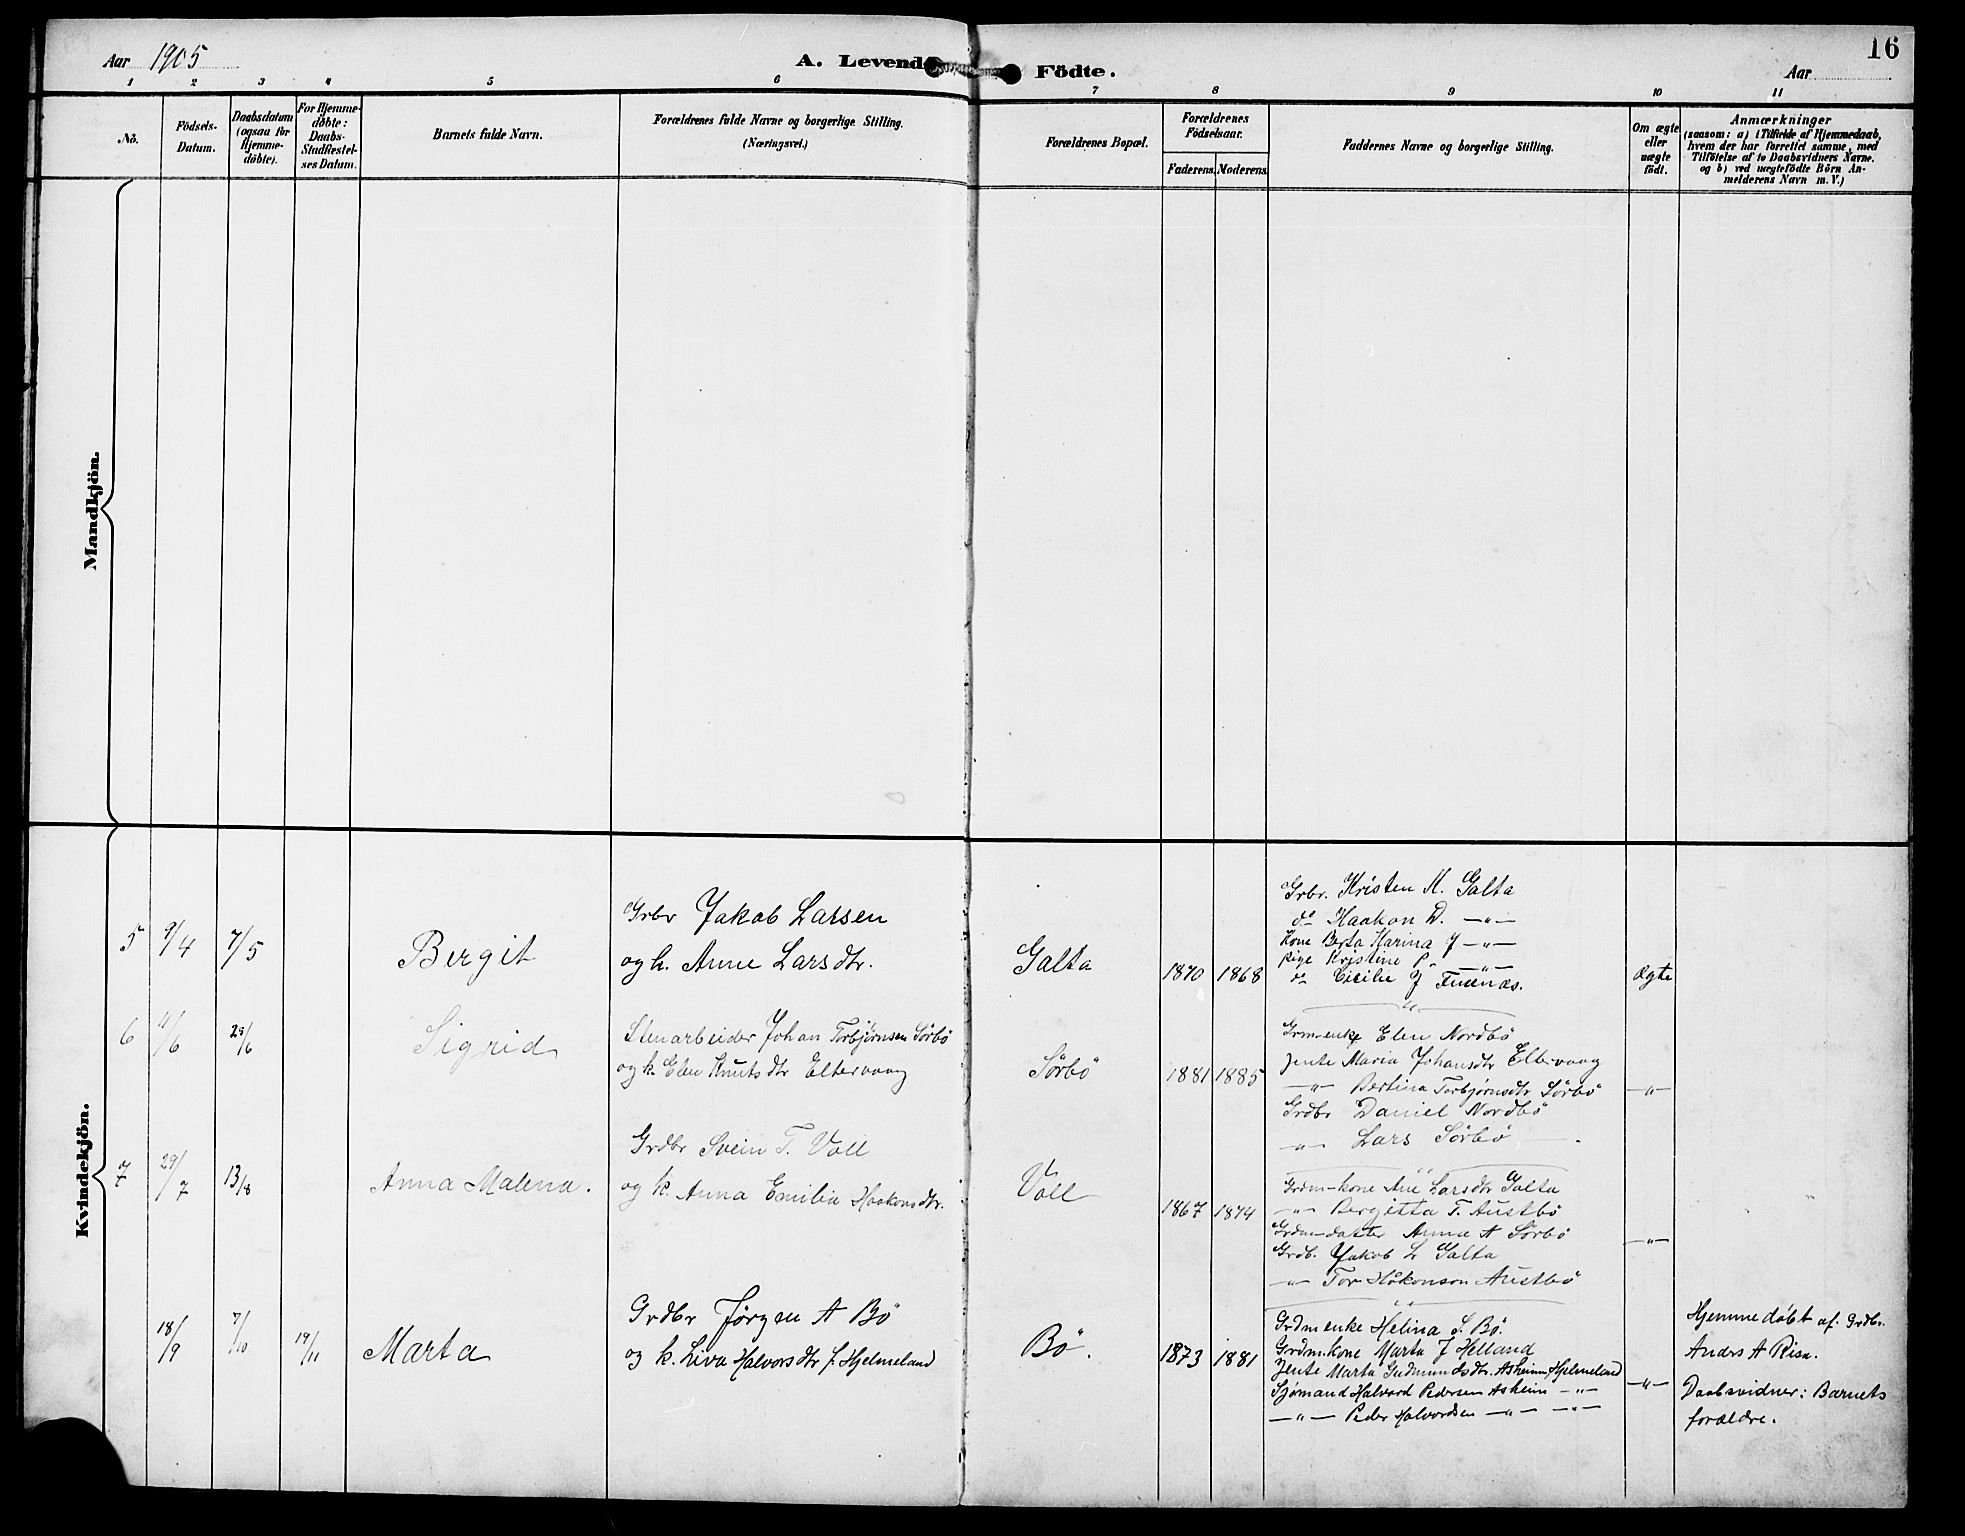 Aar 1905
A. Levende Födte.
Aar
16
1 2 3 4 5 6 7 8 9 10 11
No.
Födsels-
Datum.
Daabsdatum
(ogsaa for
Hjemme-
döbte).
For Hjemme-
döbte:
Daabs-
Stadfæstel-
ses Datum.
Barnets fulde Navn.
Forældrenes fulde Navne og borgerlige Stilling.
(Næringsvei.)
Forældrenes Bopæl.
Forældrenes
Födselsaar.
Faderens. Moderens.
Faddernes Navne og borgerlige Stilling.
Om ægte
eller
uægte
födt.
Anmærkninger
(saasom: a) i Tilfælde af Hjemmedaab,
hvem der har forrettet samme, med
Tilföielse af to Daabsvidners Navne.
og b) ved uægtefödte Börn An-
melderens Navn m. V.)
Mandkjön.
Kvindekjön.
5 9/4 7/5
Bergit
Grbr Jakob Larsen
og h. Anne Larsdtr.
Galta
1870 1868
Grbr. Kristen K. Galta
do Haakon D. —"—
Kone Berta Karina J —"—
Pige Kristine P. —"—
do Cicilie J Fuenæs.
ægte
6 11/6 29/6
Sigrid
Stenarbeider Johan Torbjørnsen Sørbö
og k. Elen Knutsdtr Eltervaag
Sørbö
1881 1885
Grm-enke Elen Nordbö
Jente Maria Johansdtr Eltervaag
—"— Bertina Torbjørnsdtr Sörbö
Grdbr Daniel Nordbö
—"— Lars Sörbö —
—"—
7 29/7 13/8
Anna Malena.
Grdbr Svein T. Voll
og k. Anna Emilia Haakonsdtr.
Voll
1867 1874
Grdm-kone Ane Larsdtr Galta
—"— Bergitta T. Austbö
Grdm-datter Anna A Sørbö
Grdb. Jakob L Galta
—"— Tor Håkonson Austbö
—"—
18/9 7/10 19/11
Marta
Grdbr Jørgen A Bö
og k. Liva Halvorsdtr f. Hjelmeland
Bö.
1873 1881
Grdmenke Helina S. Bö.
Grdm.kone Marta J Helland
Jente Marta Gudmundsdtr. Asheim, Hjelmeland
Sjømand Halvard Pedersen Asheim —"—
—"— Peder Halvordsen —"— —"—
—"—
Hjemmedøbt af. Grdbr.
Andrs A Risa.
Daabsvidner: Barnets
forældre.